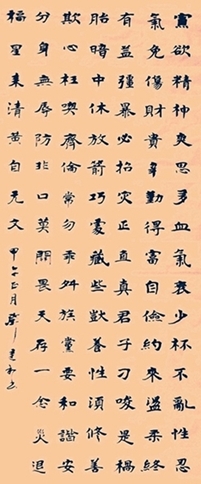 寡欲精神爽思多血氣衰少杯不亂性忍
氣免傷財貴辛勤得富自儉約來溫柔終
有益彊暴必招灾正直真君子刁唆是禍
胎暗中休放箭巧裏藏些獃養性須修善
欺心枉喫齋倫常勿乖舛族黨要和諧安
分身無辱防非口莫開畏天存一念災退
福星来清黄自元文 甲午正月